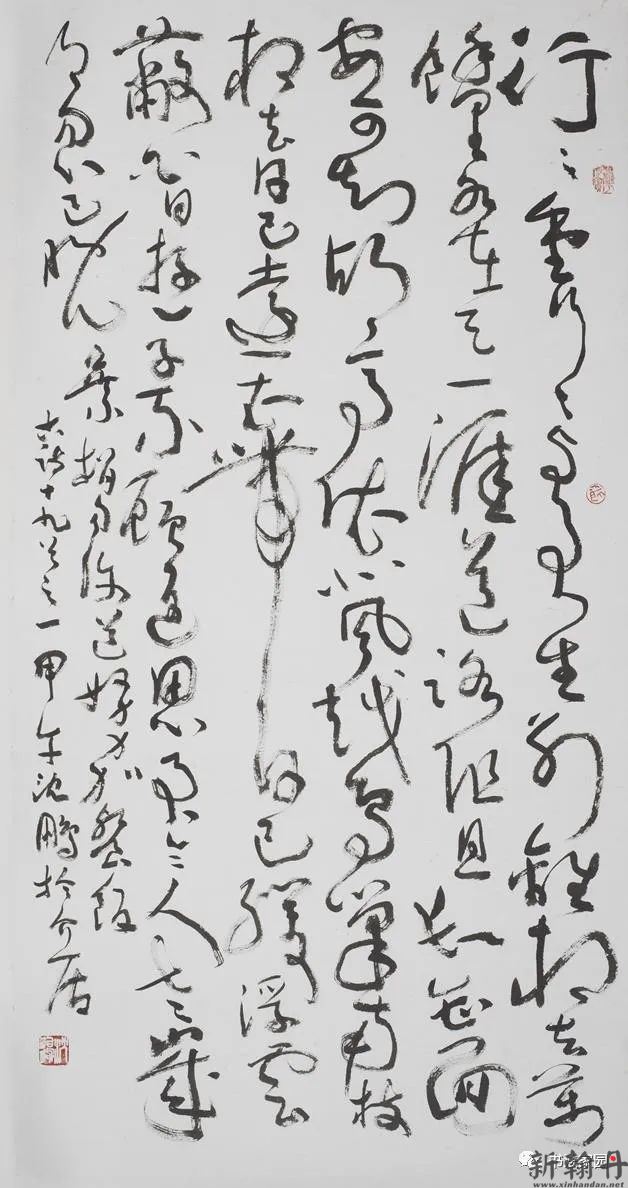 行〻重行〻與君生別離相去萬
餘里各在天一涯道路阻且長會面
安可知胡馬依北風越鳥巢南枝
相去日已遠衣帶日已緩浮雲
蔽白日遊子不顧返思君令人老歲
月忽已晚棄捐勿復道努力加餐飯
古詩十九首之一甲午沈鵬於介居
新翰丹
www.xinhandan.net